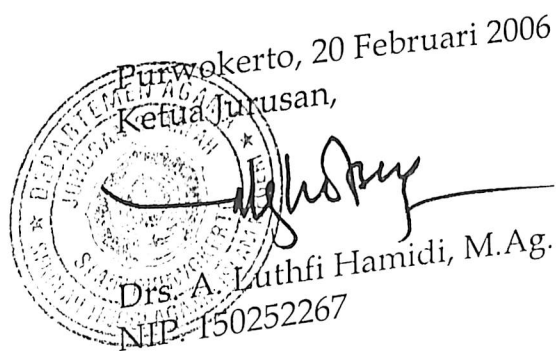 Purwokerto, 20 Februari 2006
Ketua Jurusan,
DEPARTEMEN AGAMA
JURUSAN
Drs. A. Luthfi Hamidi, M.Ag.
NIP. 150252267